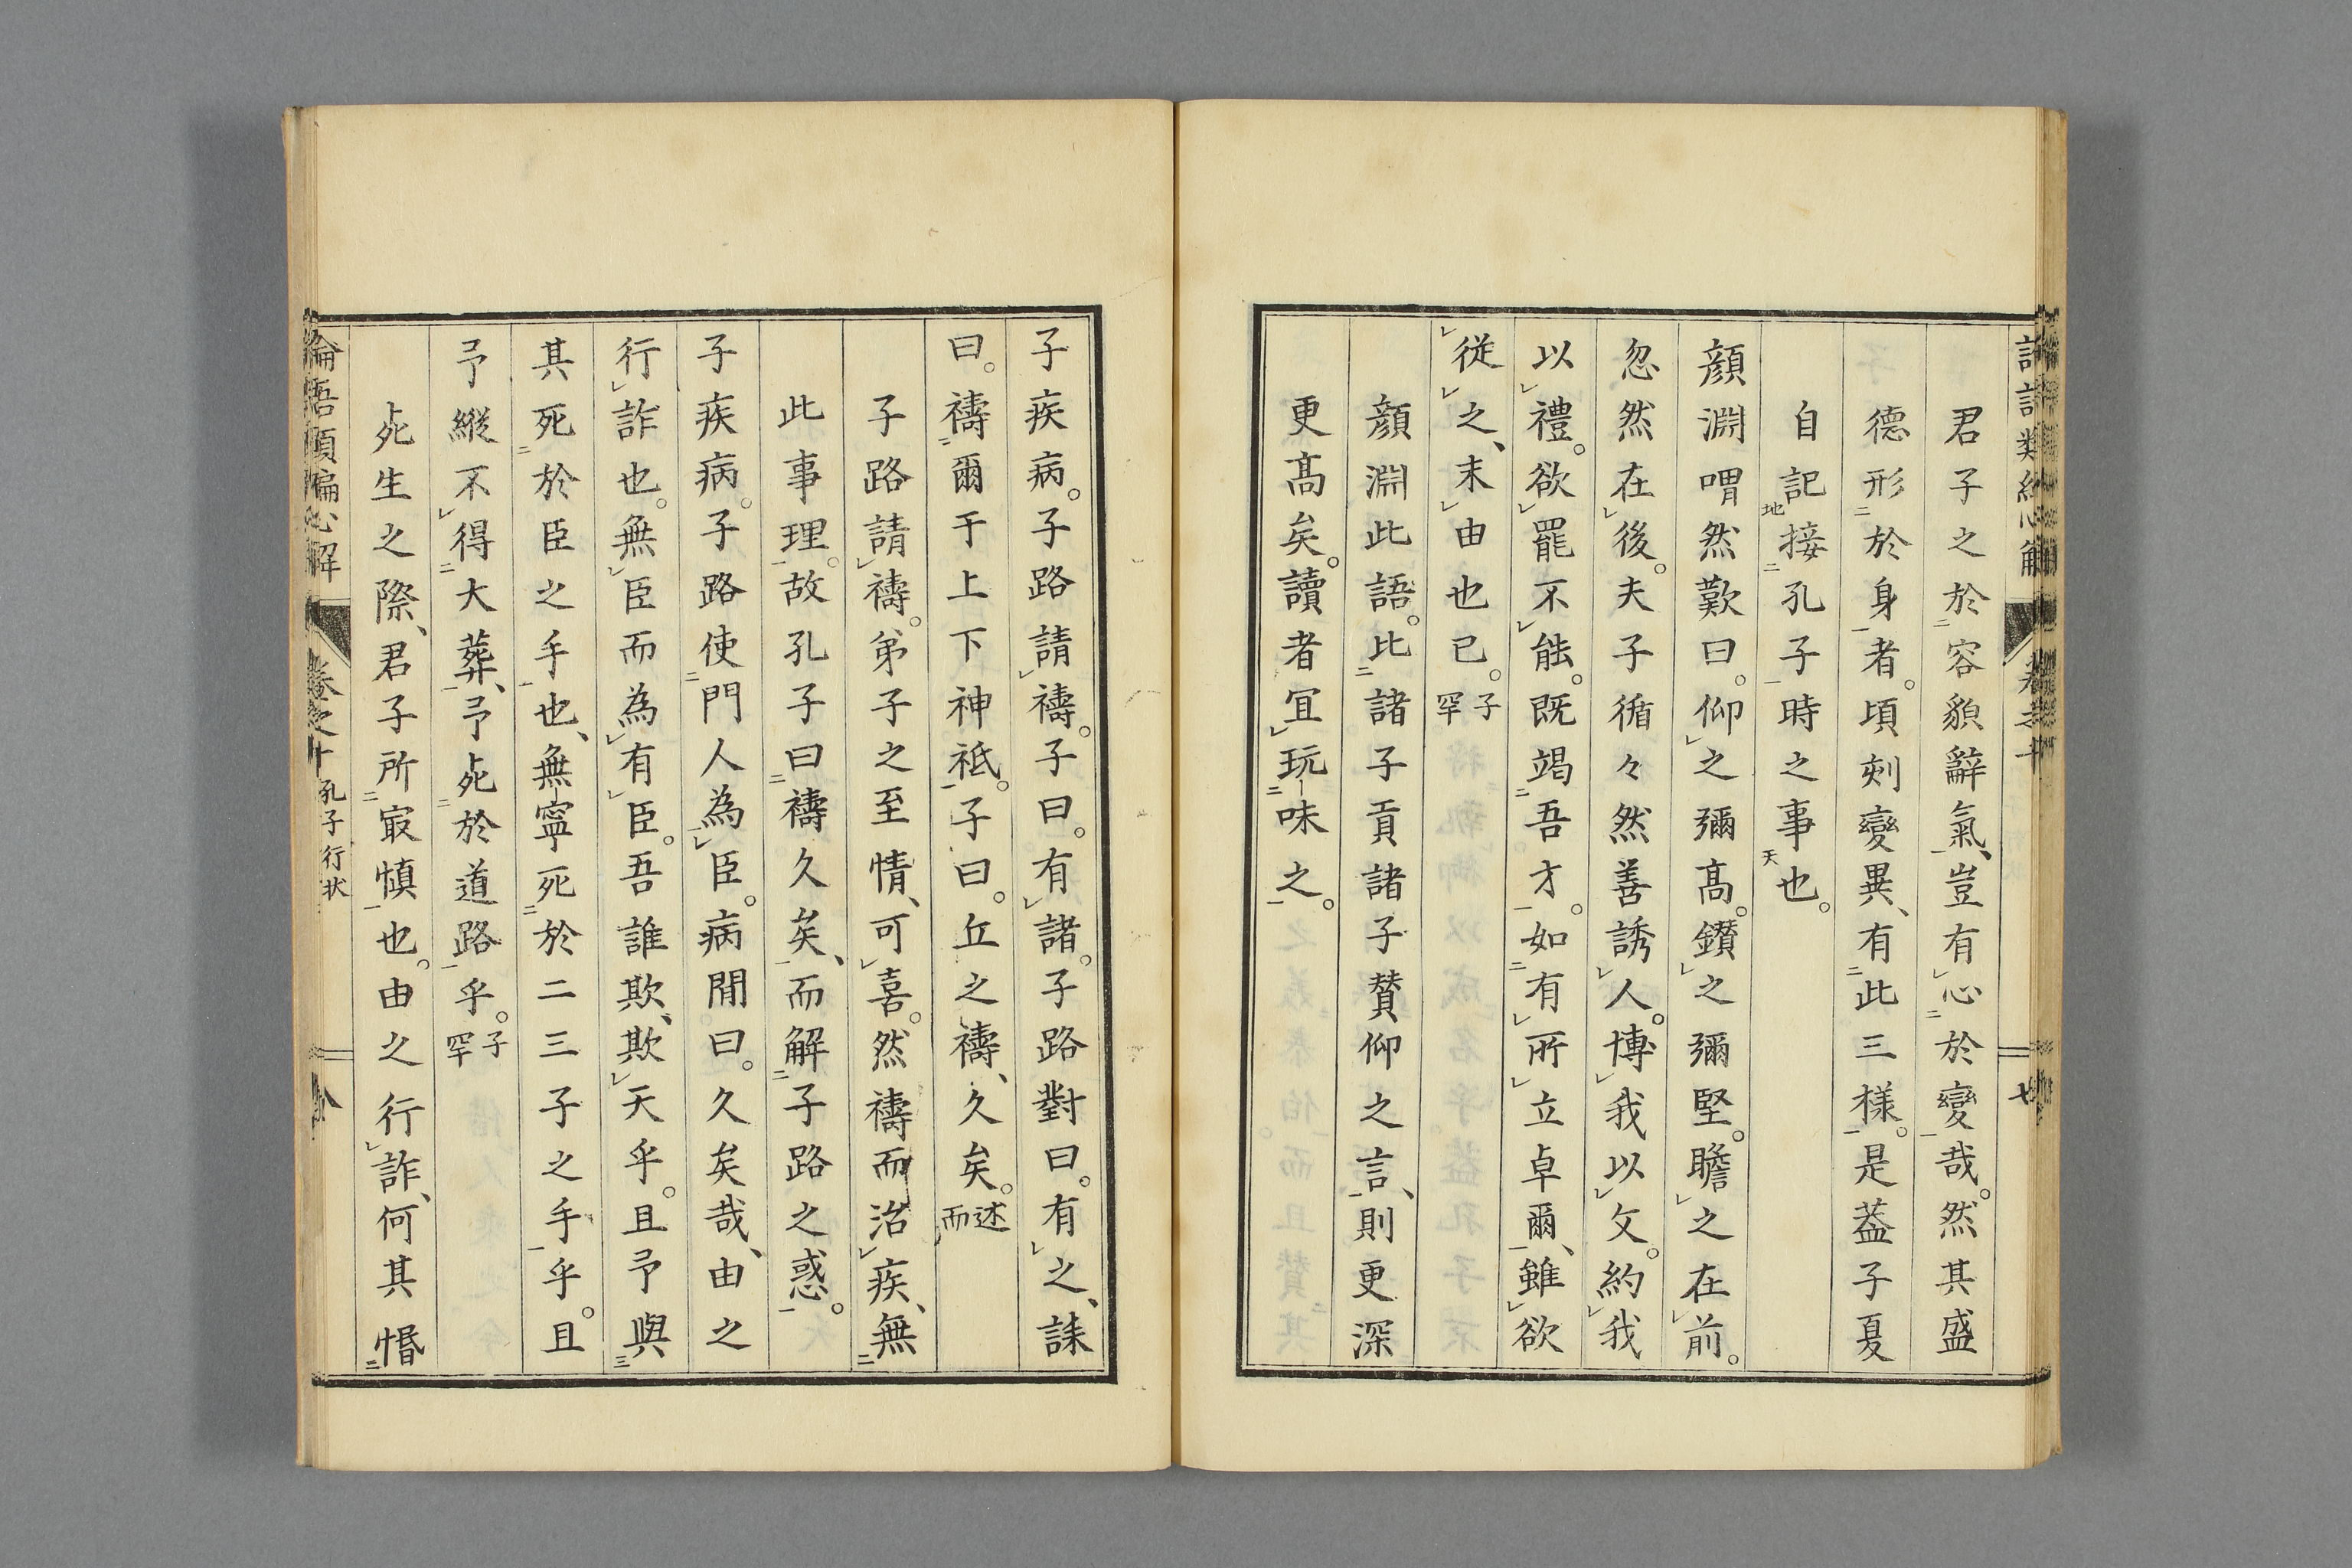 君子之於容貌辭氣、豈有心於變哉。然其盛
德形於身者。頃刻變異、有此三樣。是葢子夏
自記接孔子時之事也。
顏淵喟然歎曰。仰之彌髙。鑽之彌堅。瞻之在前。
忽然在後。夫子循々然善誘人。博我以文。約我
以禮。欲罷不能。既竭吾才。如有所立卓爾、雖欲
從之、末由也已。子罕
顏淵此語。比諸子貢諸子賛仰之言、則更深
更髙矣。讀者宜玩味之。
子疾病。子路請禱。子曰。有諸。子路對曰。有之、誄
曰。禱爾于上下神祇。子曰。丘之禱、久矣。述而
子路請禱。弟子之至情、可喜。然禱而治疾、無
此事理。故孔子曰禱久矣、而解子路之惑。
子疾病。子路使門人為臣。病閒曰。久矣哉、由之
行詐也。無臣而為有臣。吾誰欺、欺天乎。且予與
其死於臣之手也、無寧死於二三子之手乎。且
予縱不得大葬、予死於道路乎。子罕
死生之際、君子所㝡慎也。由之行詐、何其惛
論語順徧心解 卷之十 孔子行狀 八